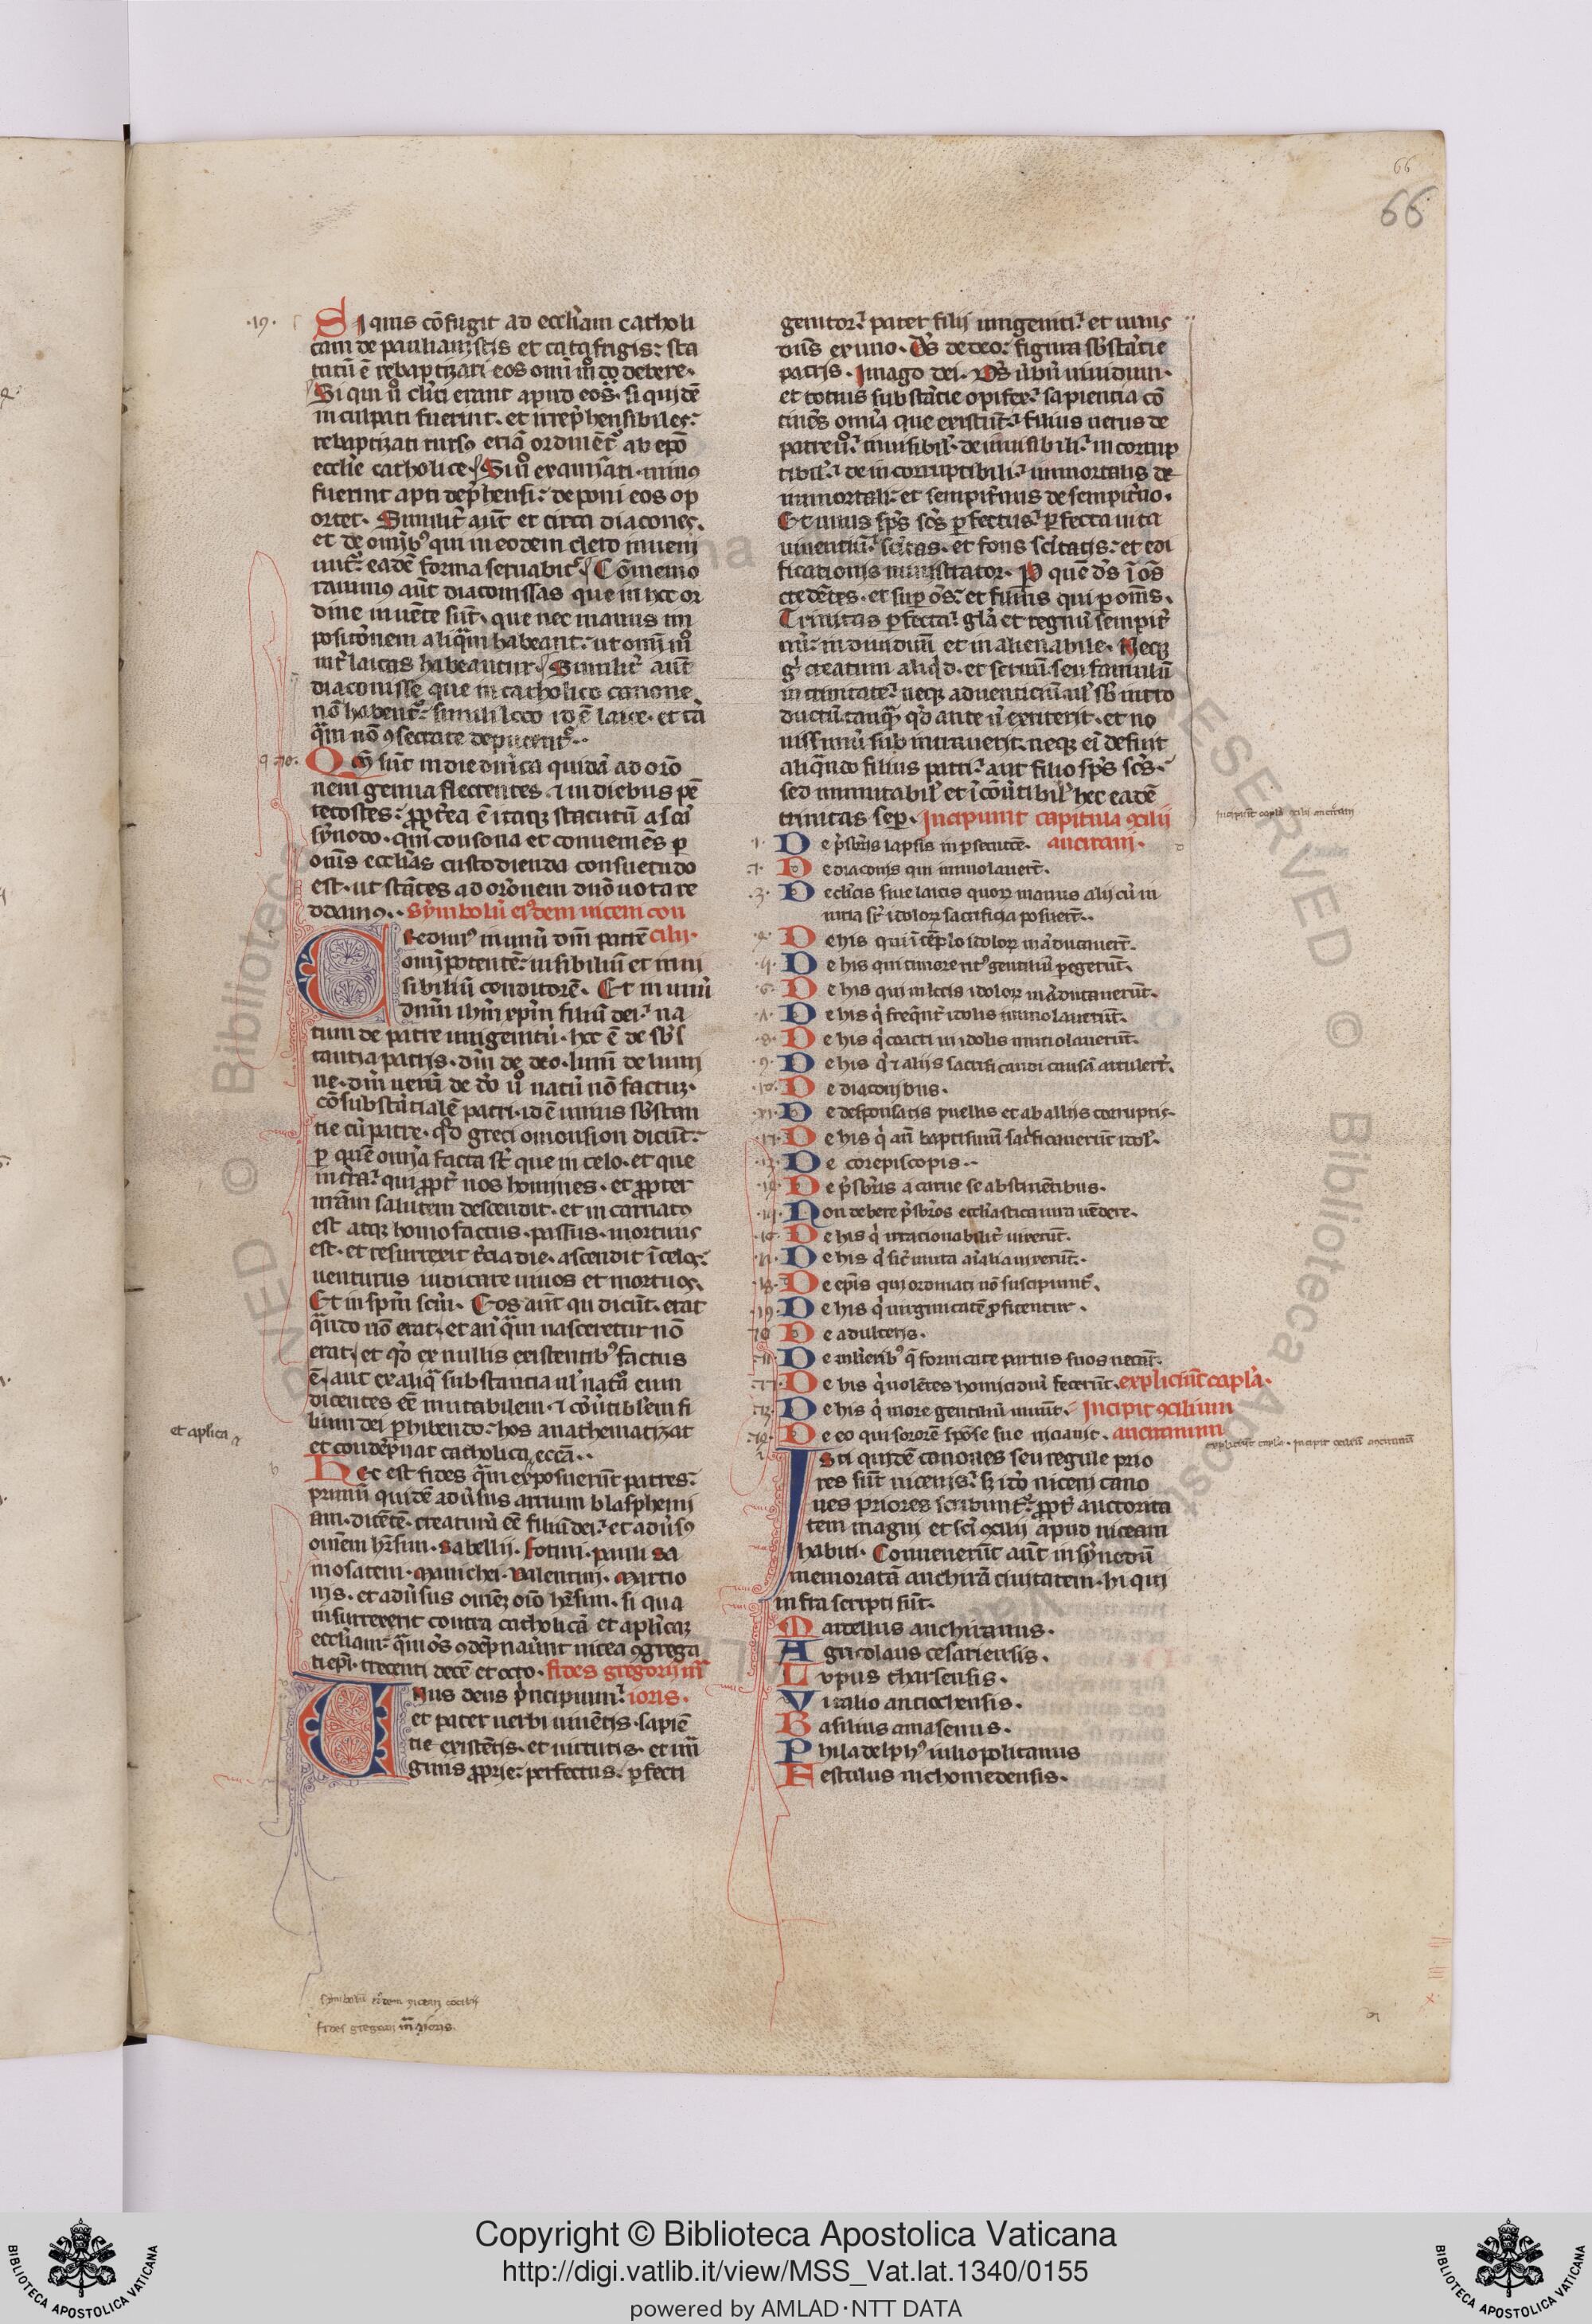 66
66
.19.
Si quis cōfugit ad eccl'iam catholi
cam de paulianistis et catafrigis: sta
tutū ē rebaptizari eos om̄i m̊do debere.
Si qui ů cl'ici erant apud eos. si quidē
inculpati fuerint. et irrep̄hensibiles:
rebaptizati rursꝰ etiā ordinēt᷑ ab ep̄o
eccl'ie catholice. Si ů examīati. minꝰ
fuerint apti dep̄hensi: deponi eos op
ortet. Similit᷑ aūt et circa diacones.
et de om̄ibꝰ qui in eodem clero inueni
unt᷑: eadē forma seruabit᷑. Cōmemo
rauimꝰ aūt diaconissas que in hec or
dine inuēte sūt. que nec manus im
positōnem aliq̄m habeant: ut om̄i m̊
int᷑ laicas habeantur. Similit᷑ aūt
diaconisse que in catholico canone
nō habent᷑: simili loco id ē laice. et tā
q̄m nō ꝯsecrate deputent᷑.
.20.
Qm̄ sūt in die dn̄ica quidā ad orō
nem genua flectentes. ⁊ in diebus pē
tecostes: ꝓpt᷑ea ē itaqꝫ statutū a sc̄a
synodo. qm̄ consona et conueniēs ꝑ
om̄s eccl'ias custodienda consuetudo
est. ut stātes ad orōnem dn̄o uota re
ddamꝰ. Symbolū eiꝰdem niceni con
cilij.
Credimꝰ in unū dm̄ patrē
om̄ipotentē: uisibiliū et inui
sibiliū conditorē. Et in unū
dn̄m ih̄m xp̄m filiū dei: na
tum de patre unigenitū. hec ē de sb̄s
tantia patris. dm̄ de deo. lum̄ de lumi
ne. dm̄ uerū de do ůo natū nō factuꝫ.
cōsubstātialē patri. id ē unius sb̄stan
tie cū patre. qd̄ greci omousion dicūt:
ꝑ quē om̄ia facta st̄ que in celo. et que
in t᷑ra: qui ꝓpt᷑ nos homines. et ꝓpter
nr̄am salutem descendit. et incarnatꝰ
est atqꝫ homo factus. passus. mortuus
est. et resurrexit t᷑cia die. ascendit ī celos:
uenturus iudicare uiuos et mortuos.
Et in sp̄m scm̄. Eos aūt qui dicūt. erat
qn̄do nō erat. et an̄ q̄m nasceretur nō
erat. et qd̄ ex nullis existentibꝰ factus
ē. aut ex aliq̄ substantia ul' nat̄a eum
dicentes eē mutabilem. ⁊ cōūtiblem fi
lium dei ꝑhibendo: hos anathematizat
et cōdēpnat catholica ecc̄a.
et aplica
Hec est fides q̄m exposuerūt patres:
primū quidē adūsus arrium blasphemi
am. dicētē. creaturā eē filiū dei: et adūsꝰ
om̄em hr̄sim. Sabellij. Fotini. pauli Sa
mosateni. Manichei. Valentini. Martio
nis. et adūsus om̄eꝫ om̄o hr̄sim. si qua
insurrexerit contra catholicā et apl'icaꝫ
eccl'iam: q̄m oēs ꝯdēpnauūt nicea ꝯgrega
ti epi. trecenti decē et octo. fides gregorij ma
ioris.
Unus deus p̄ncipium:
et pater uerbi uiuētis. sapiē
tie existētis. et uirtutis. et im̄a
ginis ꝓprie: perfectus. ꝑfecti
symbolū eiꝰdem niceni cōcilij
fides gregorij maioris.
genitor: pater filij unigeniti: et unus
dn̄s ex uno. Ds̄ de deo: figura sb̄stātie
patris. Imago dei. Ds̄ ūbū uiuidum.
et totius substātie opifex: sapientia cō
tinēs om̄ia que existūt: filius uerus de
patre ůo: inuisibil'. de inuisibili: incorrup
tibil': de incorruptibili: immortalis de
immortali: et sempit᷑nus de sempit᷑no.
Et unus sp̄s sc̄s ꝑfectus: ꝑfecta uita
uiuentiū: scītas. et fons scītatis: et edi
ficationis ministrator. Per quē ds̄ ī oēs
credētes. et suꝑ oēs: et filius qui ꝑ om̄s.
Trinitas ꝑfecta: gl'a et regnū sempit᷑
nū: indiuiduū et inalienabile. Neqꝫ
gͥ creatum aliqͥd. et seruū. seu famulū
in trinitate: neqꝫ aduenticiū ul' sb̄intro
ductū. tamq̄ꝫ qd̄ ante n̄ extiterit. et no
uissimū subintrauerit. neqꝫ ei defuit
aliq̄ndo filius patri: aut filio sp̄s sc̄s.
sed inmutabil' et īcōūtibil' hec eadē
trinitas sep̄. Incipiunt capitula ꝯcilij
ancirani.
Incipiūt capl'a ꝯcilij ancirani
.1. De p̄sbris lapsis in ꝑsecutōe.
.2. De diaconis qui immolauerūt.
.3. De cl'icis siue laicis quorꝫ manus alij cū in
iuria sr̄ idolorꝫ sacrificia posuerūt.
.4. De his qui ī tēplo idolorꝫ māducauerūt.
.5. De his qui timore ritꝰ gentiliū ꝑegerūt.
.6. De his qui in locis idolorꝫ māducauerūt.
.7. De his qͥ freqn̄t᷑ idolis immolauerūt.
.8. De his qͥ coacti in idolis immolauerūt.
.9. De his qͥ ⁊ alijs sacrificandi causā attulerūt.
.10. De diaconibus.
.11. De desponsatis puellis et ab alijs corruptis.
.12. De his qͥ an̄ baptismū sac̄ficauerūt idol'.
.13. De corepiscopis.
.14. De p̄sbris a carne se abstinētibus.
.15. Non debere p̄sbros eccl'iastica iura uēdere.
.16. De his qͥ irrationabilit᷑ uixerūt.
.17. De his qͥ sic̄ muta aīalia uixerūt.
.18. De ep̄is qui ordinati nō suscipiunt᷑.
.19. De his qͥ uirginitatē ꝓfitentur.
.20. De adulteris.
.21. De mulieribꝰ q̄ fornicate partus suos necāt.
.22. De his qͥ uolētes homicidiū fecerūt. explicūt capl'a.
.23. De his qͥ more gentiliū uiuūt. Incipit ꝯcilium
.24. De eo qui sororē spōse sue uiciauit. anciranum
explicūt capl'a. Incipit ꝯciliū anciranū
Isti quidē canones seu regule prio
res sūt nicenis: sꝫ ido niceni cano
nes priores scribunt᷑: ꝓpt᷑ auctorita
tem magni et sc̄i ꝯcilij apud niceam
habiti. Conuenerūt aūt in synodū
memoratā anchirā ciuitatem. hi qui
infra scripti sūt.
Marcellus anchiranus.
Agricolaus cesariensis.
Lupus tharsensis.
Vitalio antiochensis.
Basilius amasenus.
Philadelphꝰ iuliopolitanus
Eestulus nichomedensis.
Copyright © Biblioteca Apostolica Vaticana
http://digi.vatlib.it/view/MSS_Vat.lat.1340/0155
powered by AMLAD·NTT DATA
BIBLIOTECA APOSTOLICA VATICANA
BIBLIOTECA APOSTOLICA VATICANA